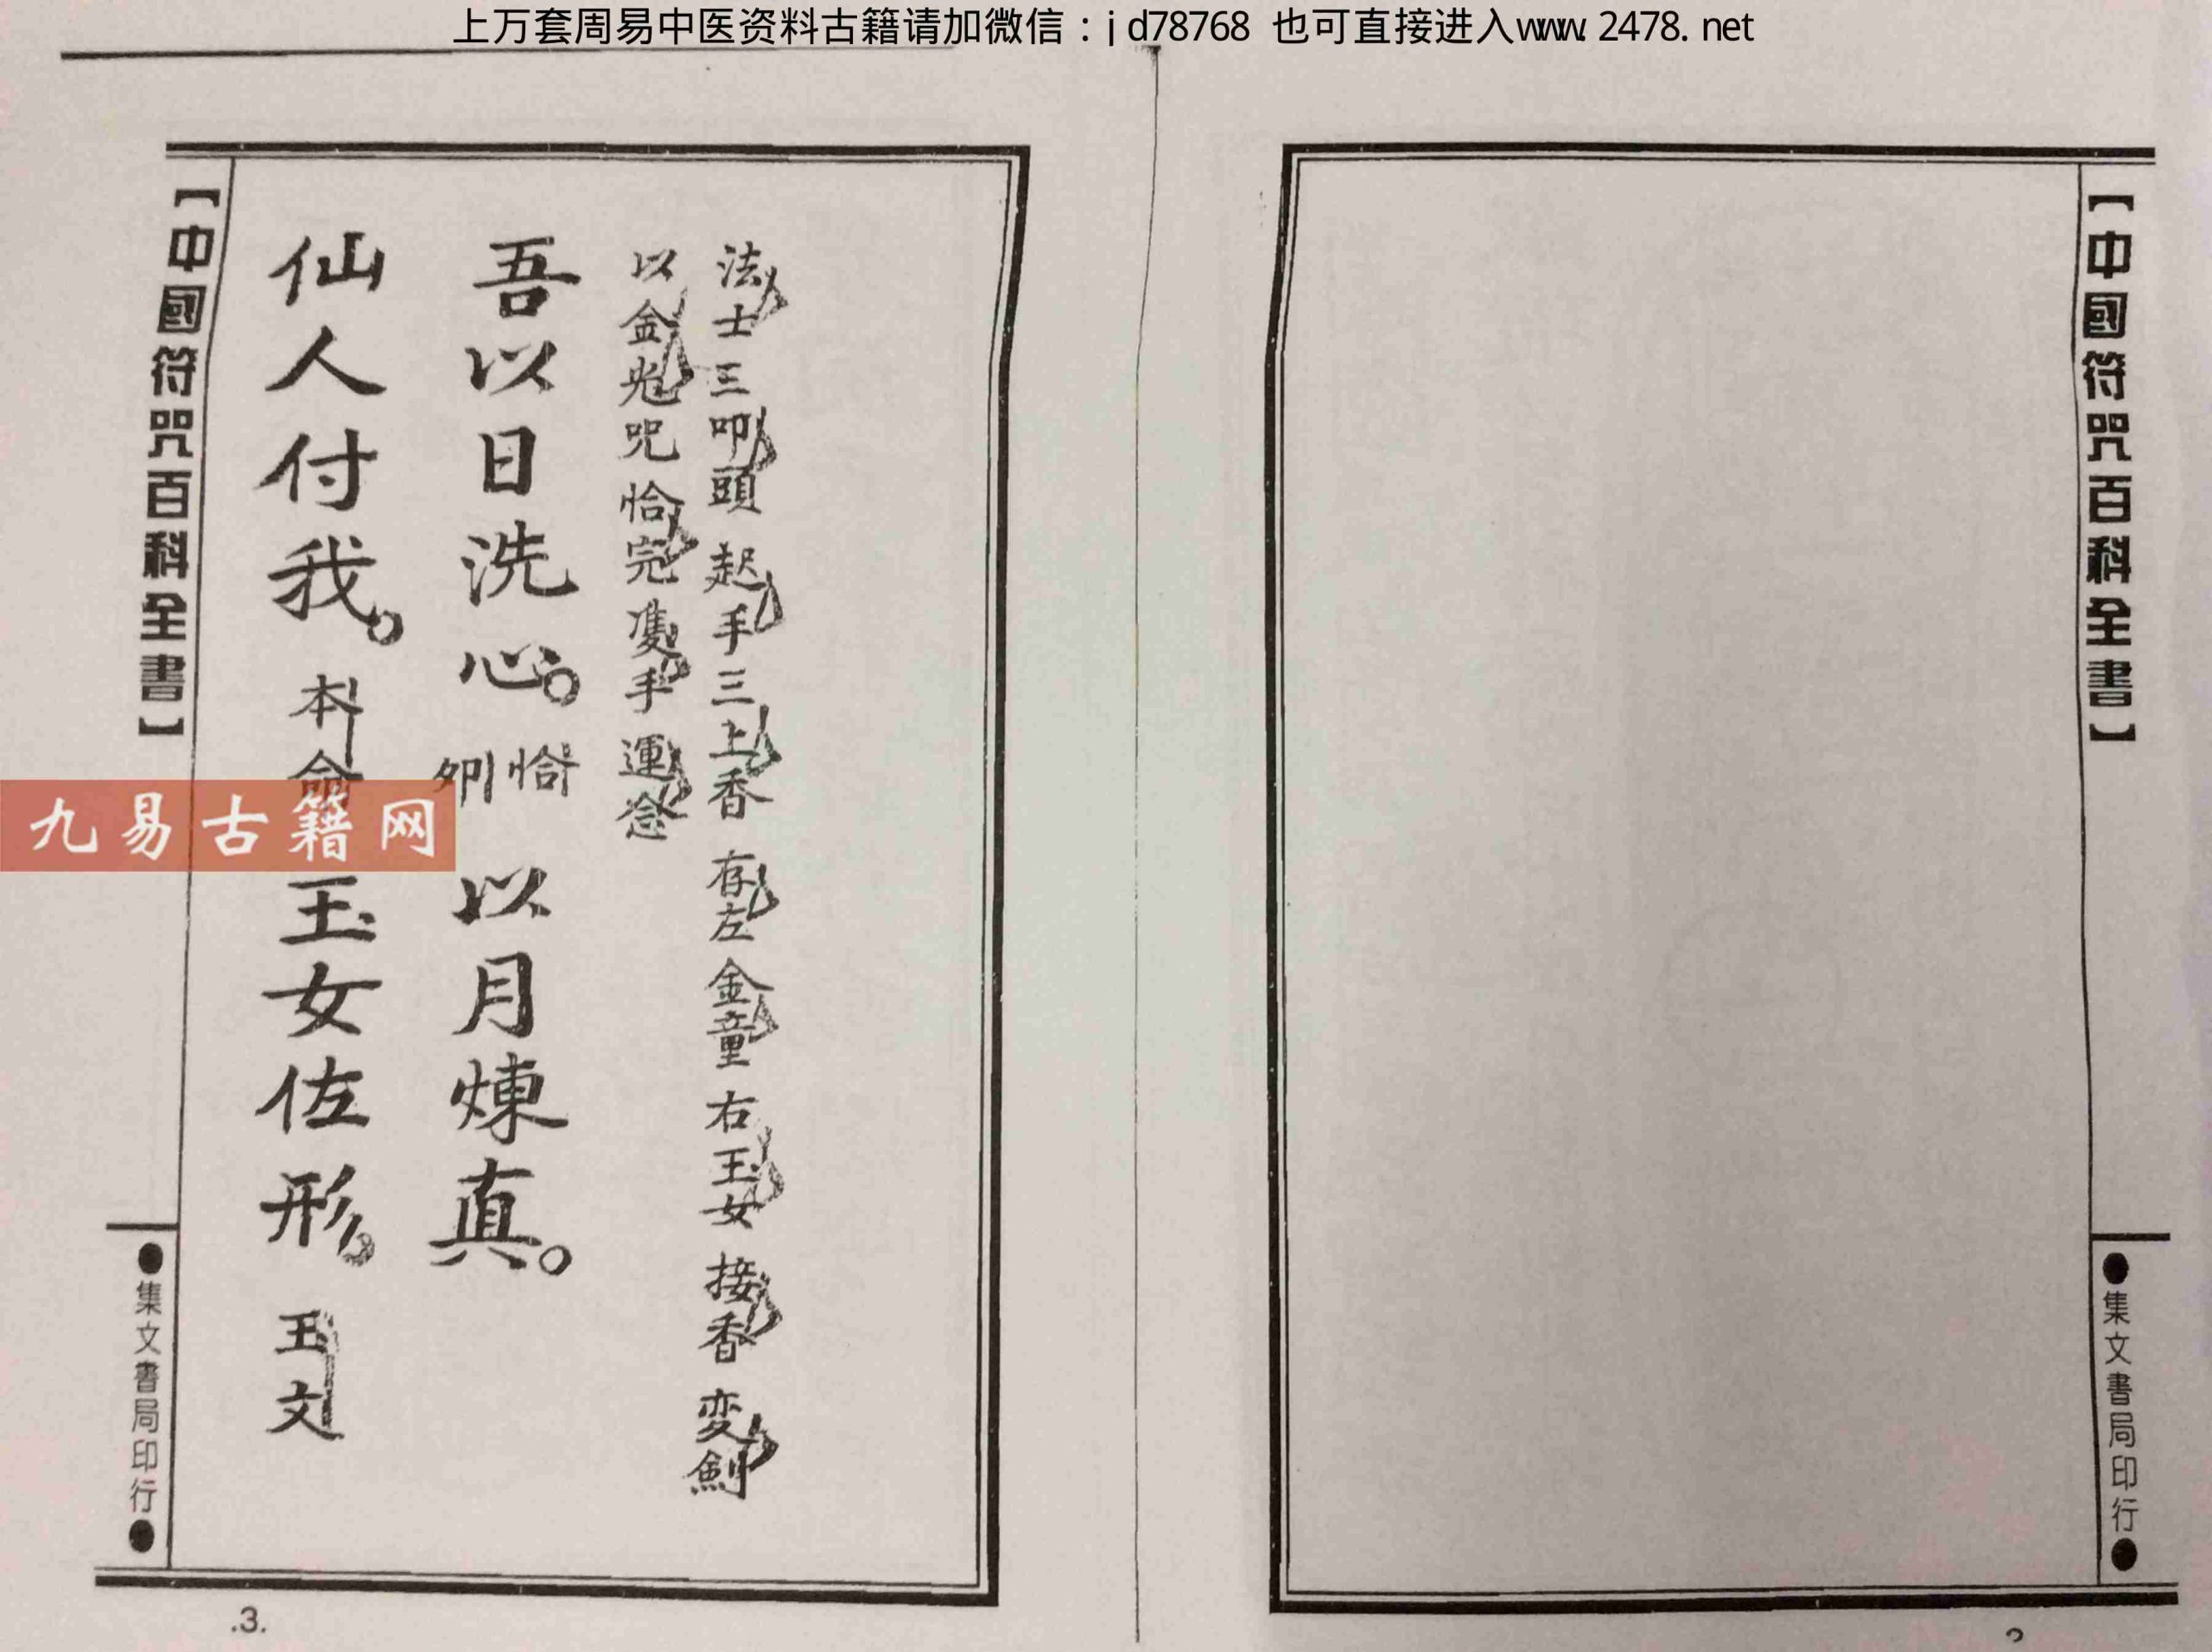 上万套周易中医资料古籍请加微信：jd78768 也可直接进入www.2478.net
【中國符咒百科全書】
●集文書局印行●
法士三叩頭 起手三上香 存左金童 右玉女 接香 变劍
以金光咒 恰完 隻手運念
吾以日洗心。 恰 以月煉真。
仙人付我。 本命 玉女佐形。 玉文
【中國符咒百科全書】
●集文書局印行●
.3.
九易古籍网